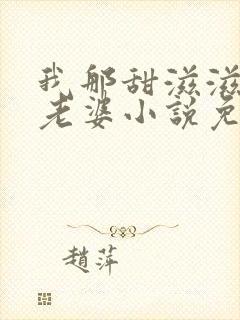 我那甜滋滋
老婆小說免
趙萍